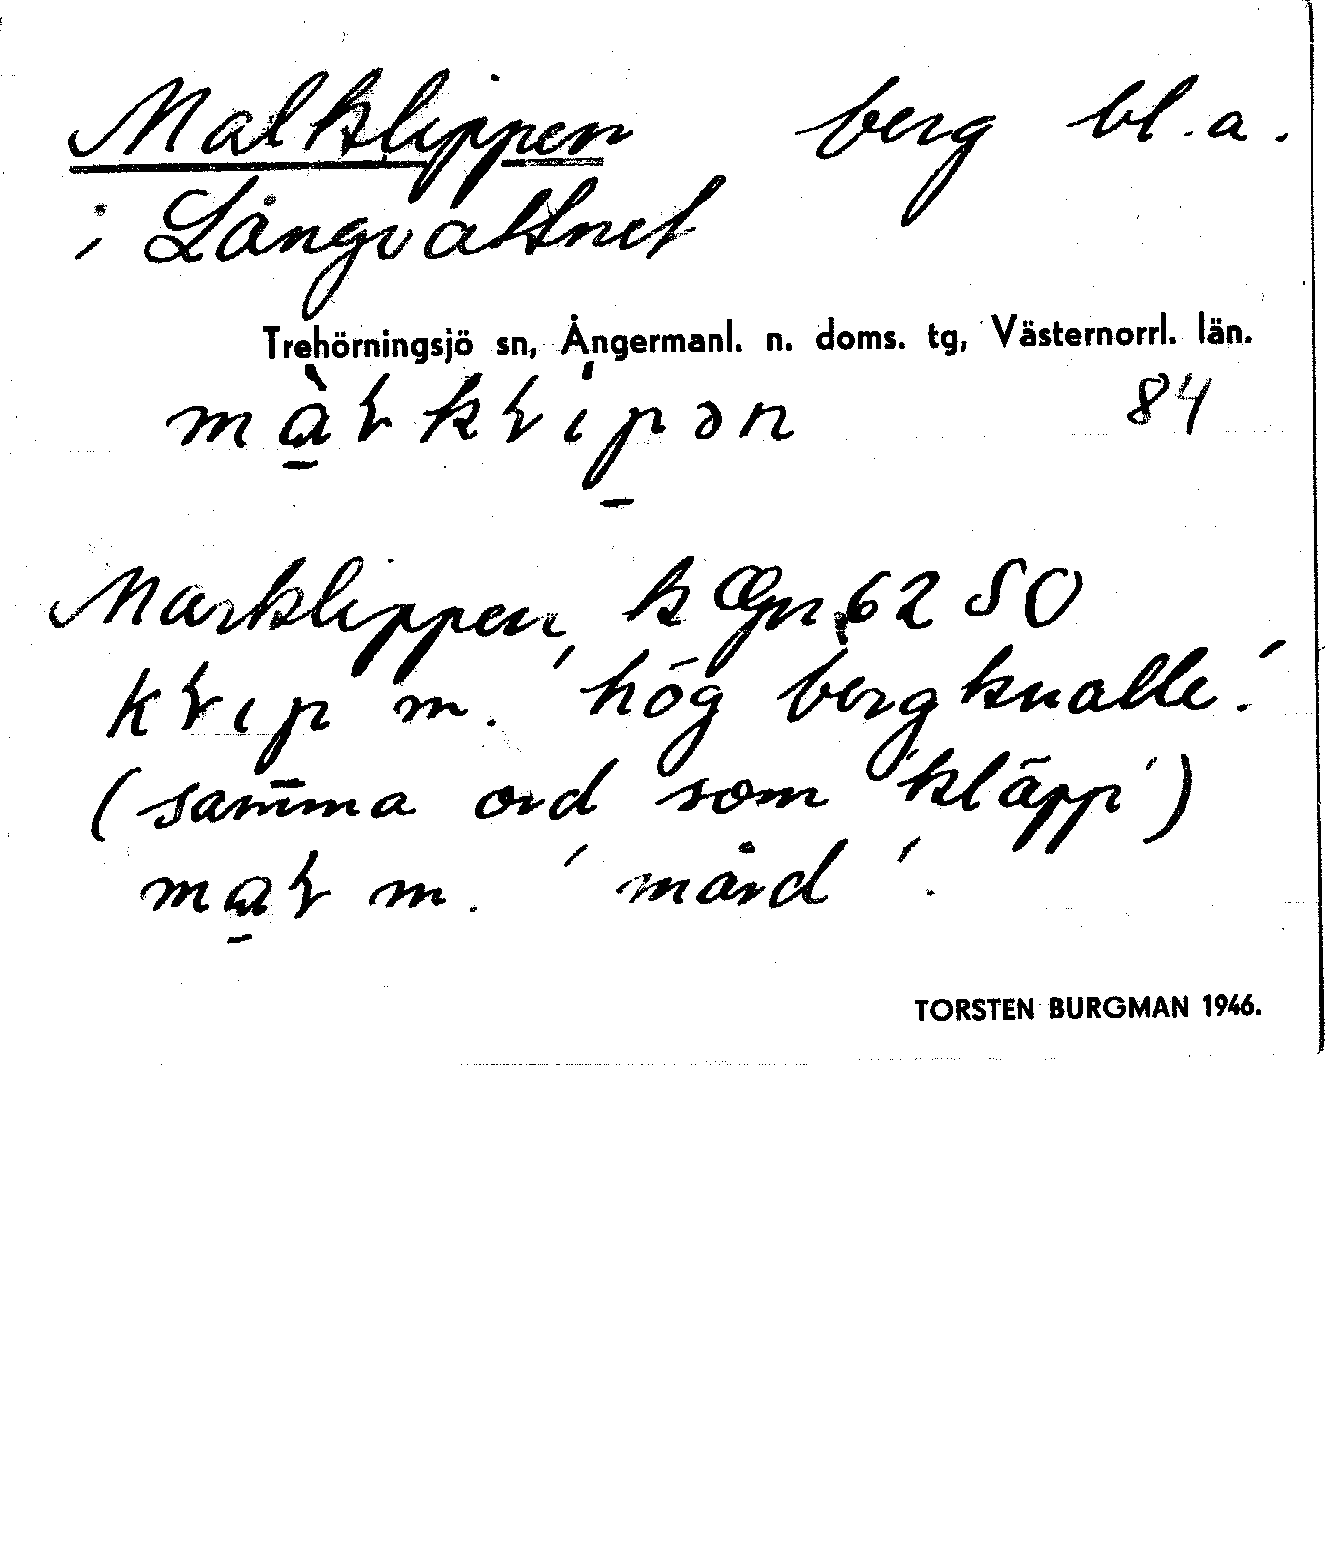 Malklippen berg bl.a.
i Långvattnet
Trehörningsjö sn, Ångermanl. n. doms. tg, Västernorrl. län.
mɑ̱̀ɽkɽip̱ən 84
Marklippen, k Gn 62 SO
kɽip m. 'hög bergknalle.'
(sam̅ma ord som 'kläpp')
mɑ̱ɽ m. 'mård'.
TORSTEN BURGMAN 1946.